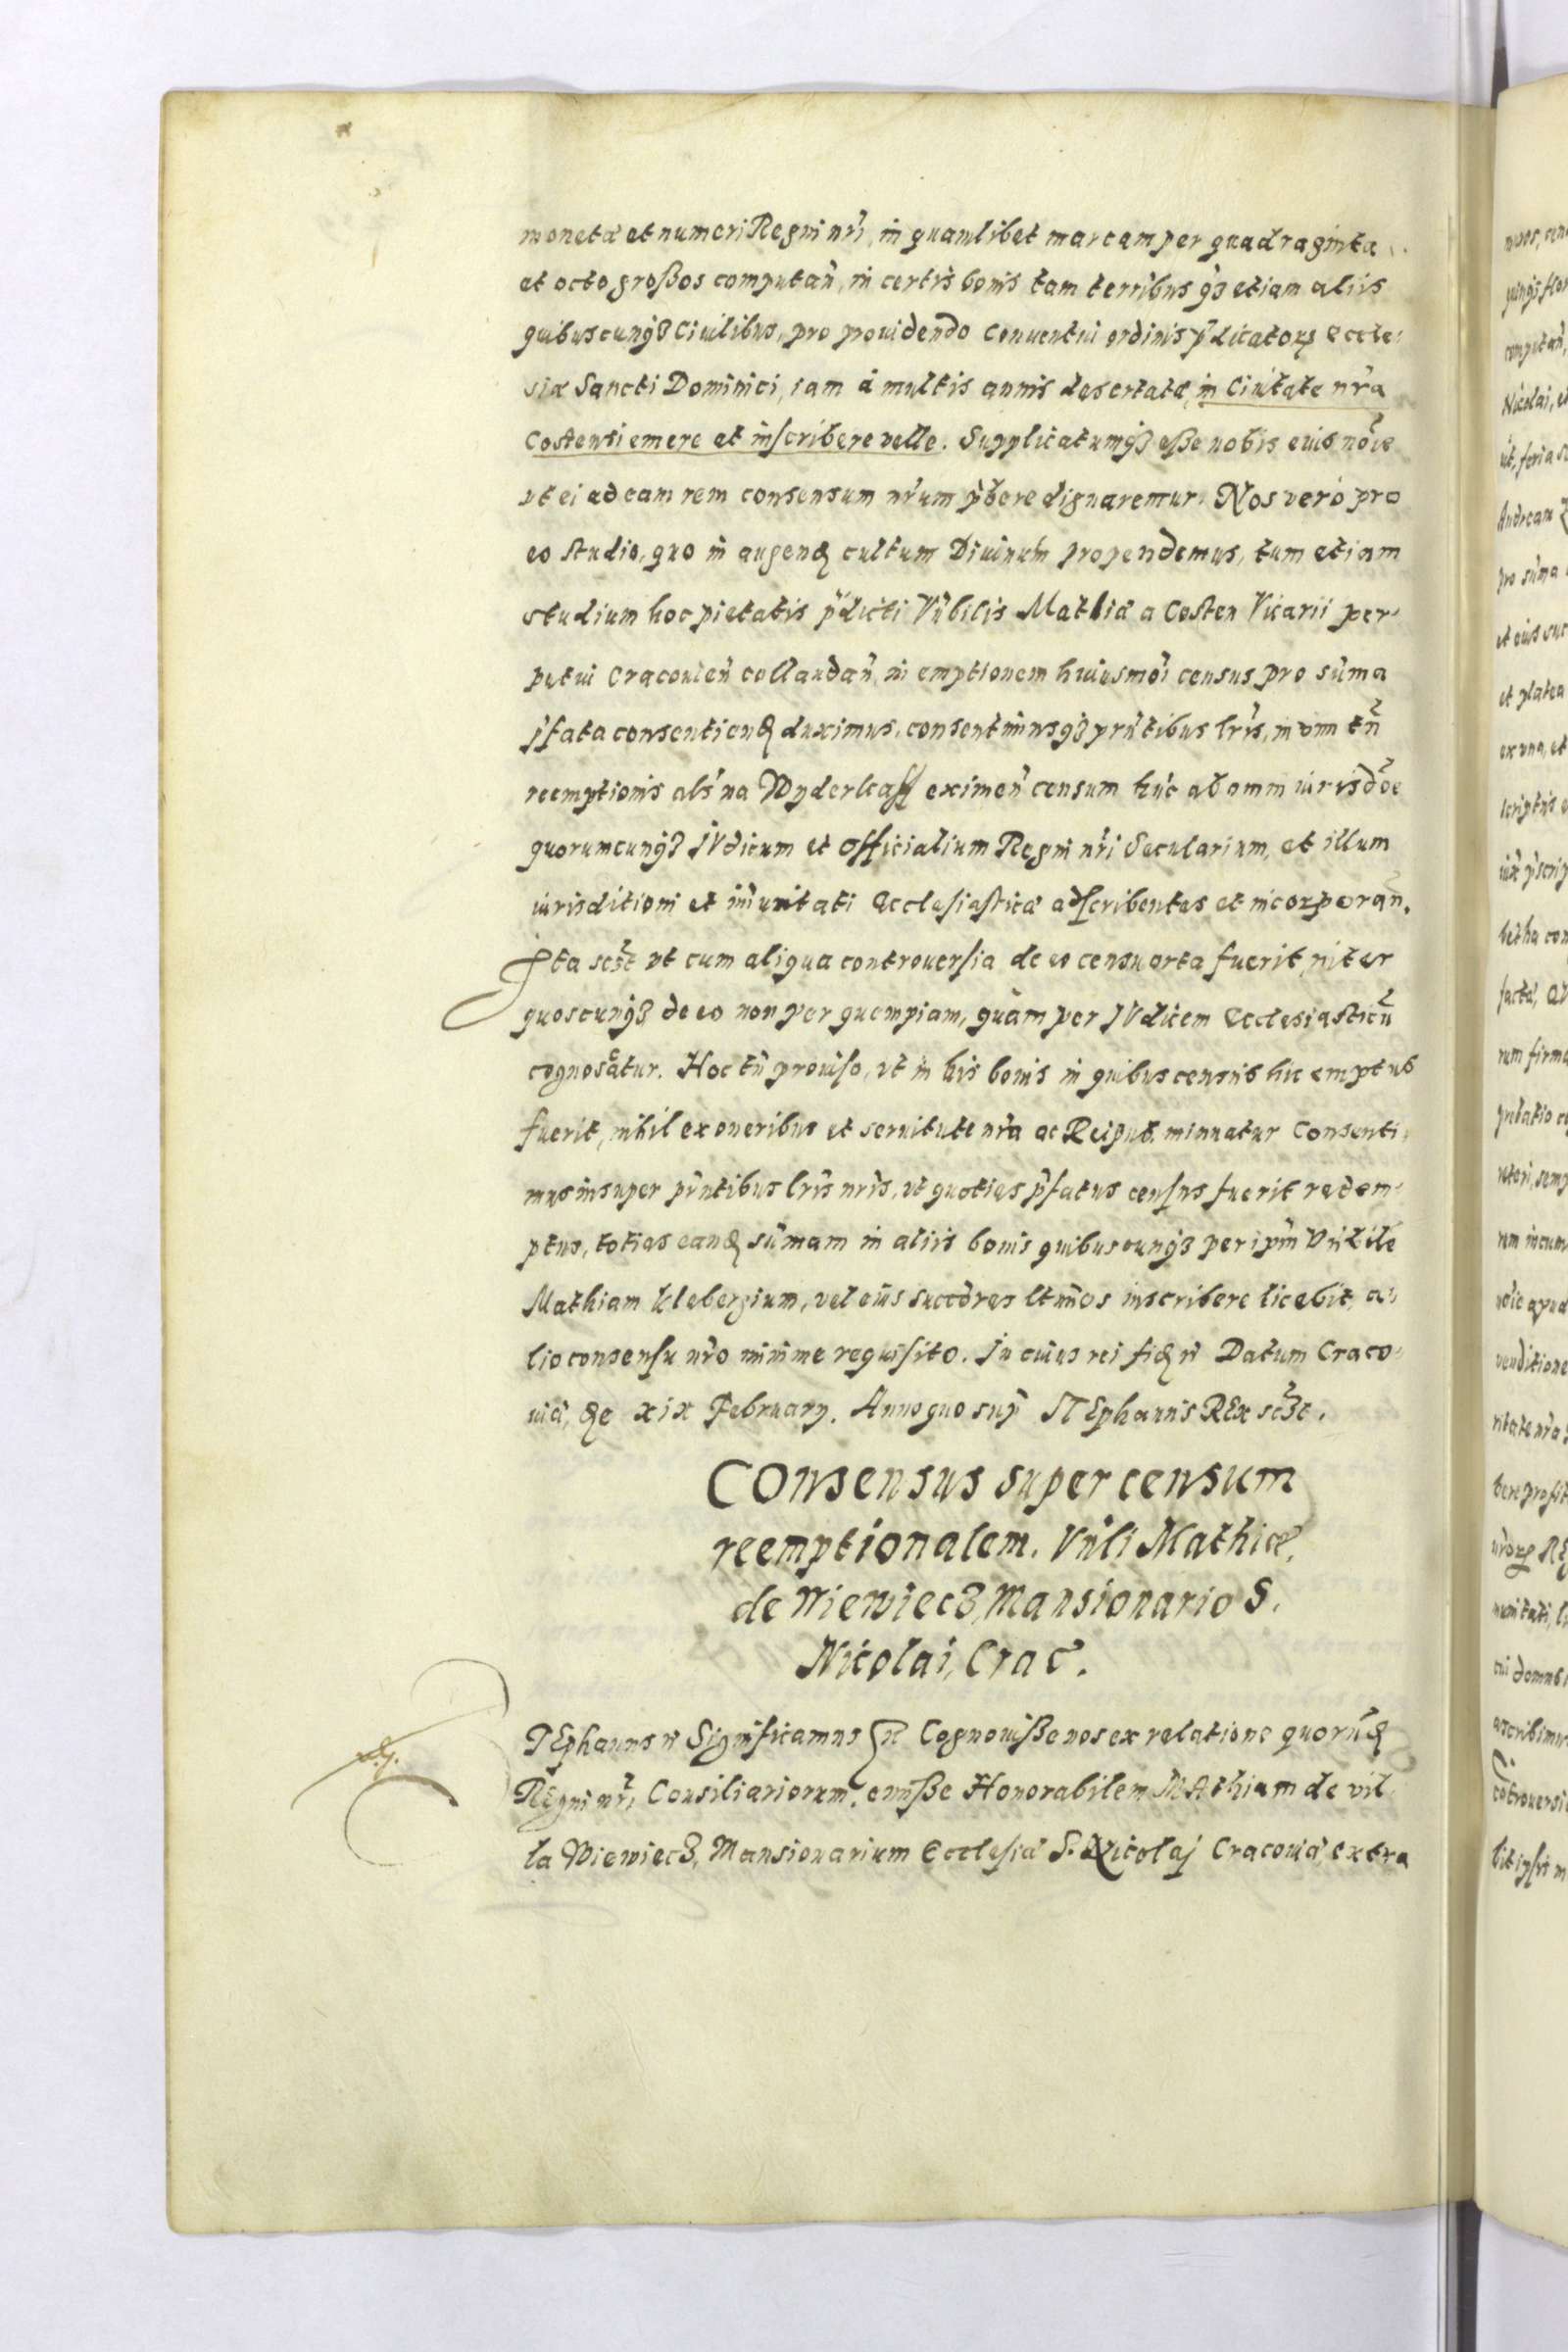 monetæ et numeri Regni nr̃i, in quamlibet marcam per quadraginta
et octo großos computañ, in certis bonis tam terr̃ibus q̃3 etiam aliis
quibuscunq3 Ciuilibus, pro prouidendo Conuentui ordinis p̃dicatorꝝ Eccle-
siæ Sancti Dominici, iam à multis annis desertatæ, in Ciuitate nr̃a
Costensi emere et inscribere velle. Supplicatumq3 eße nobis eius nõie
vt ei ad eam rem consensum nr̃um p̃bere dignaremur. Nos verò pro
eo studio, quo in augenđ cultum Diuinum propendemus, tum etiam
studium hoc pietatis p̃dicti Vñbilis Mathiæ a Costen Vicarii per-
petui Cracouieñ collaudañ, in emptionem huiusmõi census pro sum̃a
p̃fata consentienđ duximus, consentimusq3 prñtibus lr̃is, in vim tñ
reemptionis als̃ na Wyderkaff eximeñ censum hũc ab omni iurisdõe
quorumcunq3 JVdicum et officialium Regni nr̃i Secularium, et illum
iurisditioni et im̃unitati Ecclesiasticæ adscribentes et incorporañ.
Jta sc3t̃ vt cum aliqua controuersia de eo censu orta fuerit, niter
quoscunq3 de eo non per quempiam, quàm per JVdicem Ecclesiasticũ
cognoscatur. Hoc tñ prouiso, vt in his bonis in quibus census hic emptus
fuerit, nihil ex oneribus et seruitute nr̃a ac Reipub. minuatur Consenti-
mus insuper pr̃ntibus lr̃is nr̃is, vt quoties p̃fatus census fuerit redem-
ptus, toties eanđ sum̃am in aliis bonis quibuscunq3 per ipm̃ Vñbilẽ
Mathiam Klebergium, vel eius succ̃ores ltĩmos inscribere licebit, a-
lio consensu nr̃o minime requisito. Jn cuius rei fiđ ñ Datum Craco-
uiæ, đe xix February. Anno quo sup̃ STEphanus REx sc3t̃.
COnsensus super censum
reemptionalem. Vñli Mathiæ
de Wiewiec3, Mansionario S.
Nicolai, Crac̃.
STEphanus ñ Significamus ñ Cognouiße nos ex relatione quorũđ
REgni nr̃i Consiliariorum, emiße Honorabilem MAthiam de vil-
la Wiewiec3, Mansionarium Ecclesiæ S. Nicolaj Cracouiæ, extra